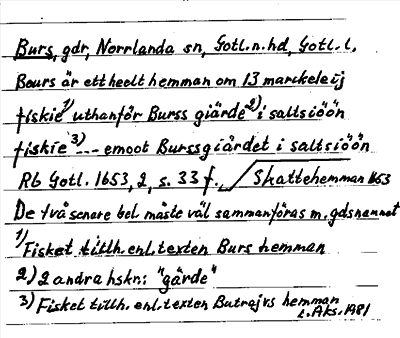 Burs, gdr, Norrlanda sn, Gotl.n.hd, Gotl. l.
Bours är ett heelt hemman om 13 marckeleij
fiskie 1) uthanför Burss giärde 2) i saltsiöön
fiskie 3) --- emoot Burssgiärdet i saltsiöön
Rb Gotl. 1653, 2, s. 33 f. Skattehemman 1653
De två senare bel. måste väl sammanföras m. gdsnamnet
1) Fisket tillh. enl. texten Burs hemman
2) 2 andra hskr: "gärde"
3) Fisket tillh. enl. texten Butrajvs hemman
L. Aks. 1981